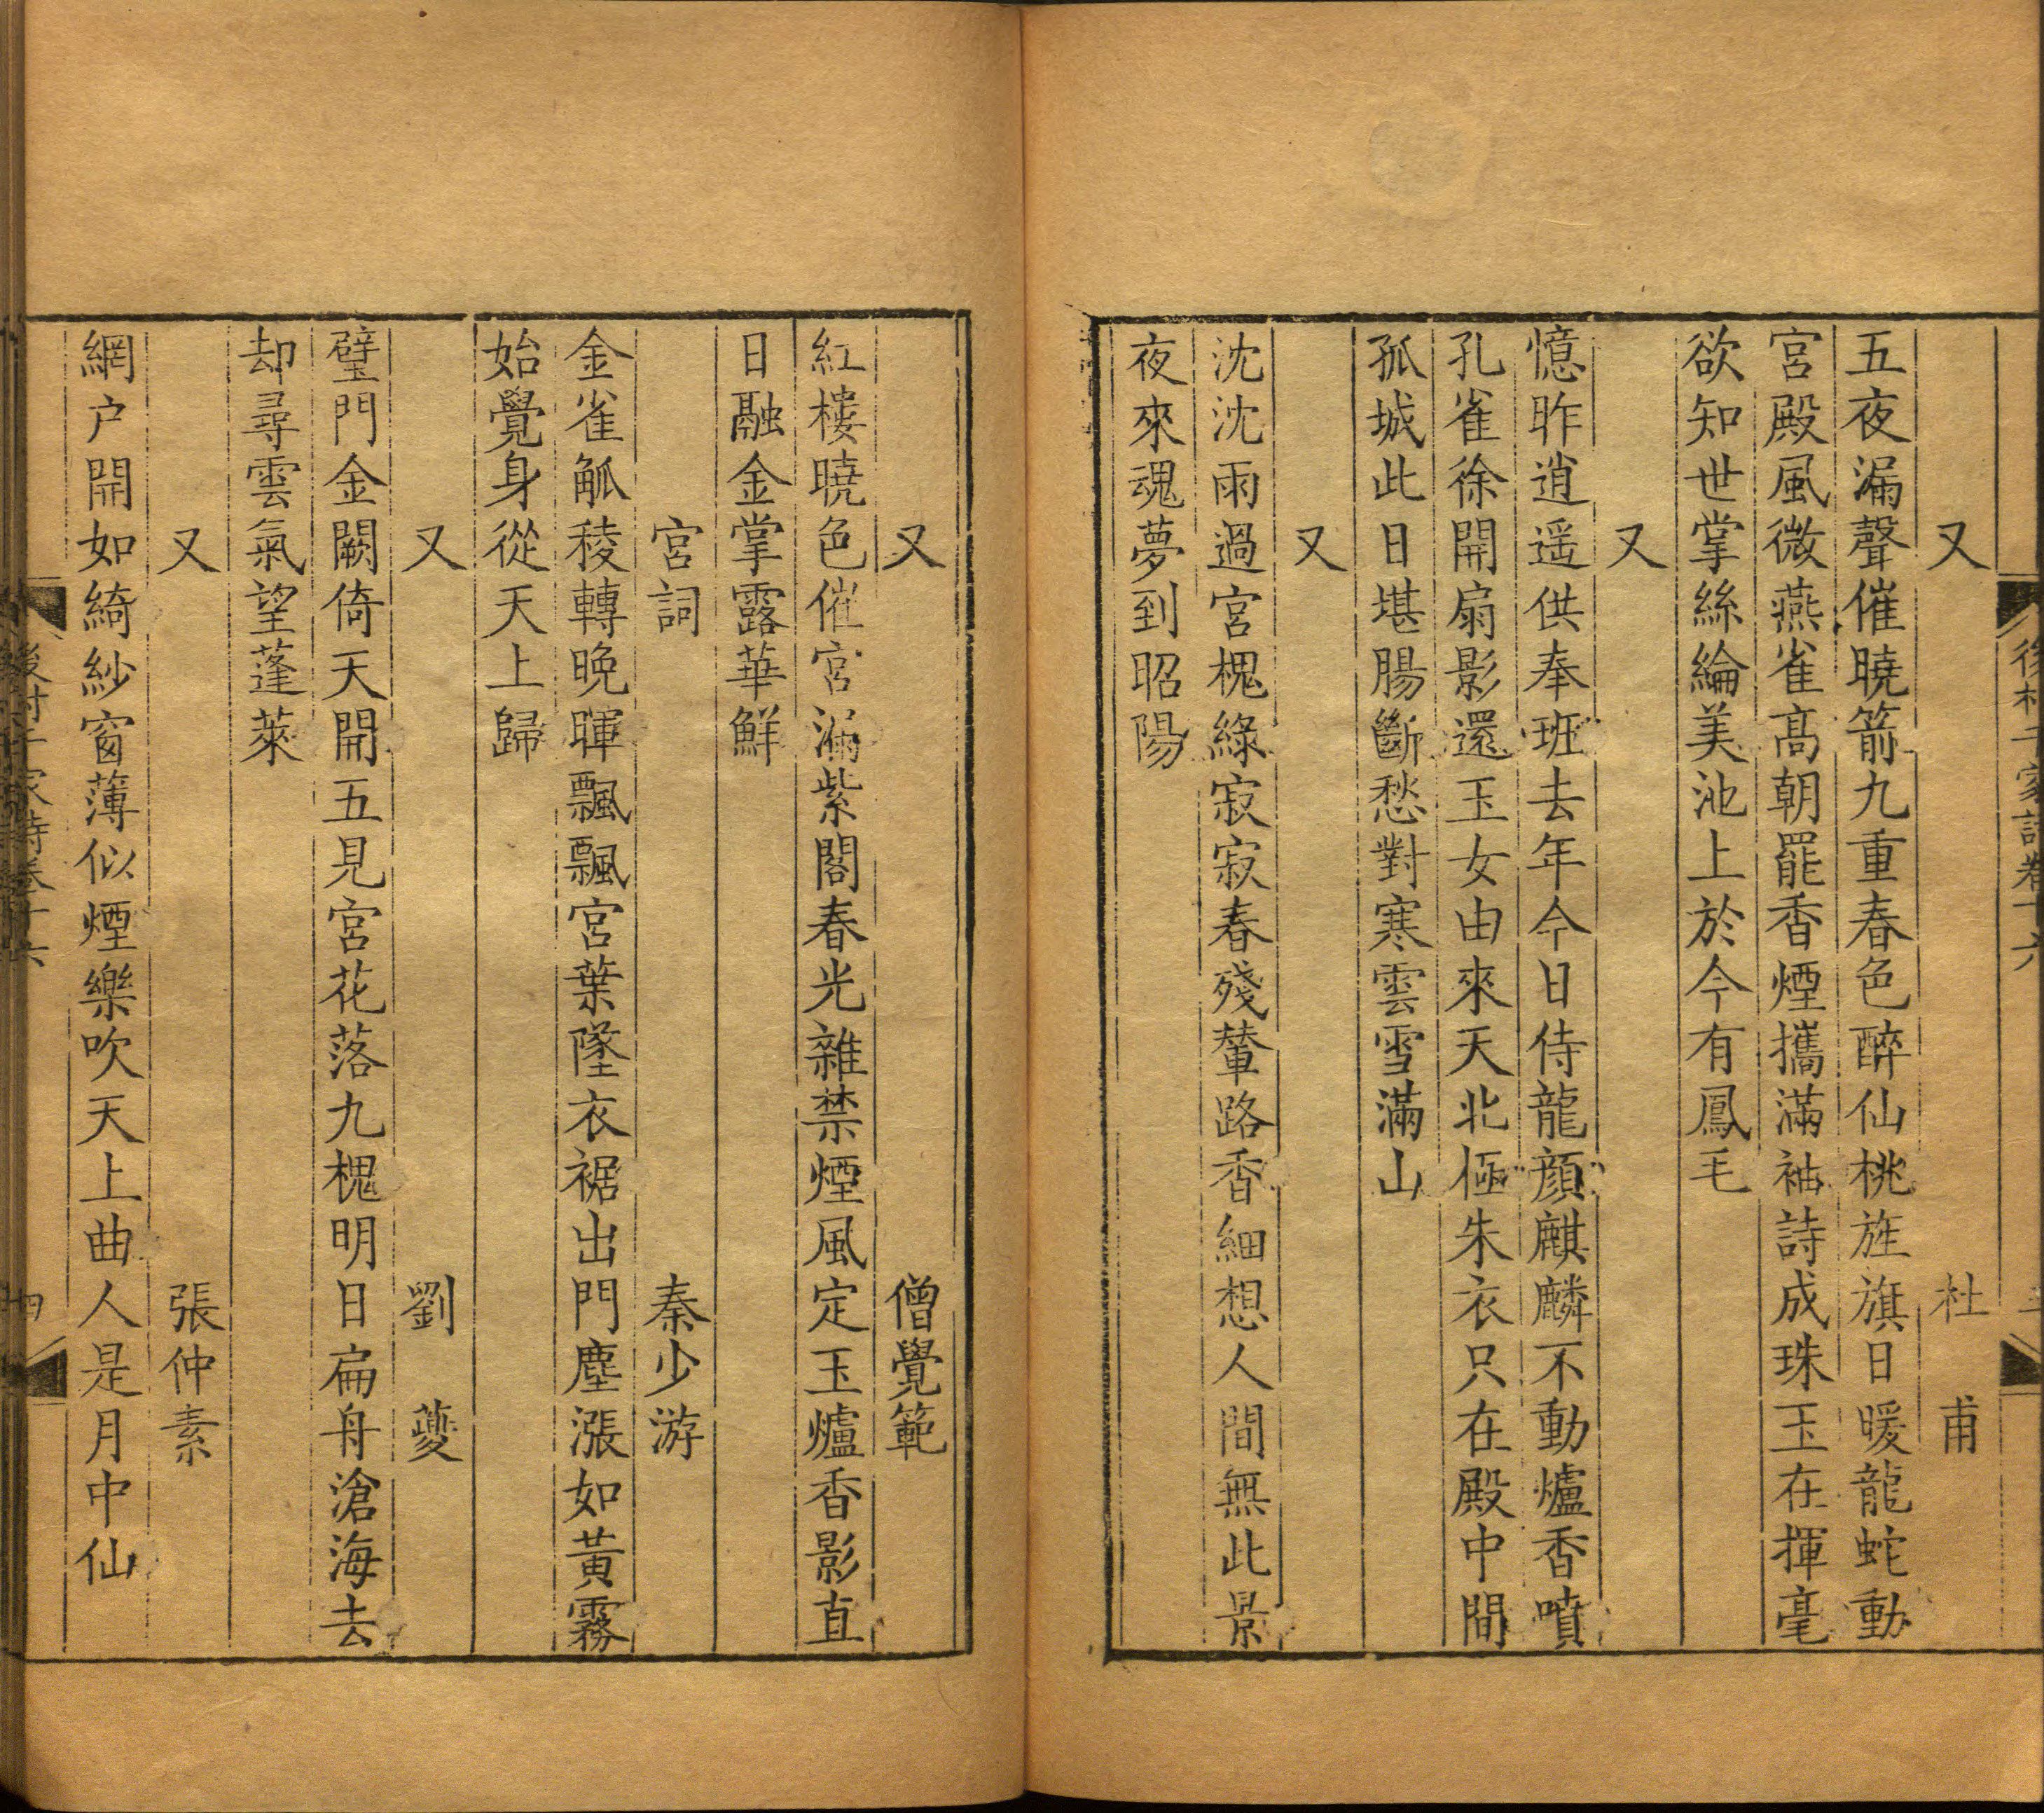 又 杜甫
五夜漏聲催曉箭九重春色醉仙桃旌旗日暖龍蛇動
宮殿風微燕雀高朝罷香煙攜滿袖詩成珠玉在揮毫
欲知世掌絲綸美池上於今有鳳毛
又
憶昨逍遥供奉班去年今日侍龍顏麒麟不動爐香噴
孔雀徐開扇影還玉女由來天北極朱衣只在殿中間
孤城此日堪腸斷愁對寒雲雪滿山
又
沈沈雨過宮槐綠寂寂春殘輦路香細想人間無此景
夜來魂夢到昭陽
又 僧覺範
紅樓曉色催宮漏紫閣春光雜禁煙風定玉爐香影直
日融金掌露華鮮
宮詞 秦少游
金雀觚稜轉晚暉飄飄宮葉墜衣裾出門塵漲如黃霧
始覺身從天上歸
又 劉夔
璧門金闕倚天開五見宮花落九槐明日扁舟滄海去
却尋雲氣望蓬萊
又 張仲素
網户開如綺紗窗薄似煙樂吹天上曲人是月中仙
後村千家詩卷十六
四